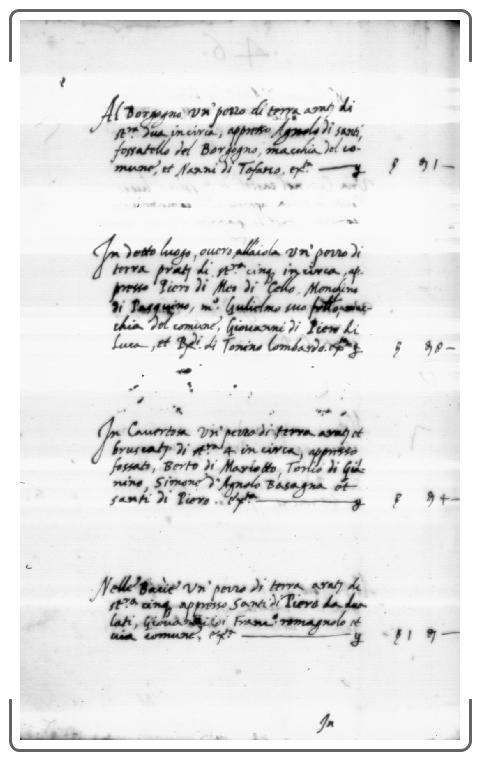 Al Borgogno un' pezzo di terra arat. di
st.ra dua in circa, appresso Agnolo di santi,
fossatello del Borgogno, macchia del co-
mune, et Nanni di Tofano, ex.ta
In detto luogo, overo all'aiola un' pezzo di
terra prat. di st.ra cinq. in circa, ap-
presso Piero di Meo di Cello, Mongino
di Pasquino, m.o Gulielmo suo
chia del comune, Giovanni di Piero di
Luca, et di Tonino lombardo. ex.ta
In Cavertosa un' pezzo di terra arat. et
bruscat. di st.ra 4 in circa, appresso
fossato, Berto di Mariotto, Tonio di Gia-
nino, Simone d'Agnolo Basagna et
santi di Piero. ex.ta
Nelle un' pezzo di terra arat. di
st.ra cinq. appresso Santi di Piero da dua
lati, Giovanni di Franc.o romagnolo et
via comune. ex.ta
In